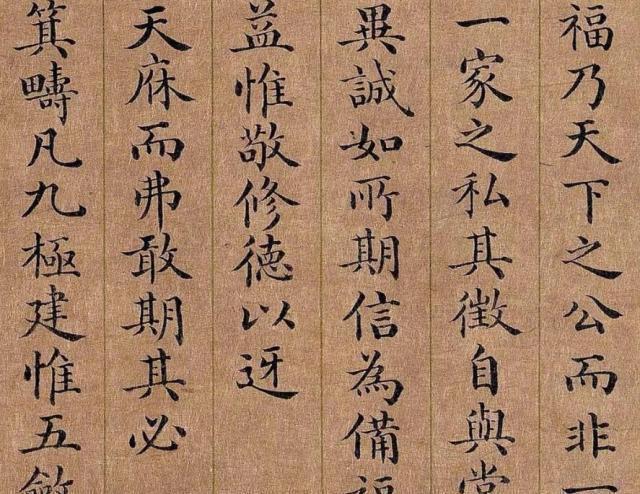 福乃天下之公而非
一家之私其徵自與
異誠如所期信為備
益惟敬修德以迓
天庥而弗敢期其必
箕疇凡九極建惟五